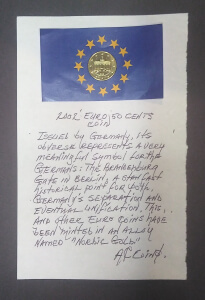 2002 EURO, 50 CENTS
COIN
ISSUED BY GERMANY, ITS
OBVERSE REPRESENTS A VERY
MEANINGFUL SYMBOL FOR THE
GERMANS: THE BRANDENBURG
GATE IN BERLIN, A
HISTORICAL POINT FOR BOTH,
GERMANY'S SEPARATION AND
EVENTUAL UNIFICATION. THIS
AND OTHER EURO COINS HAVE
BEEN MINTED IN AN ALLOY
NAMED "NORDIC GOLD"